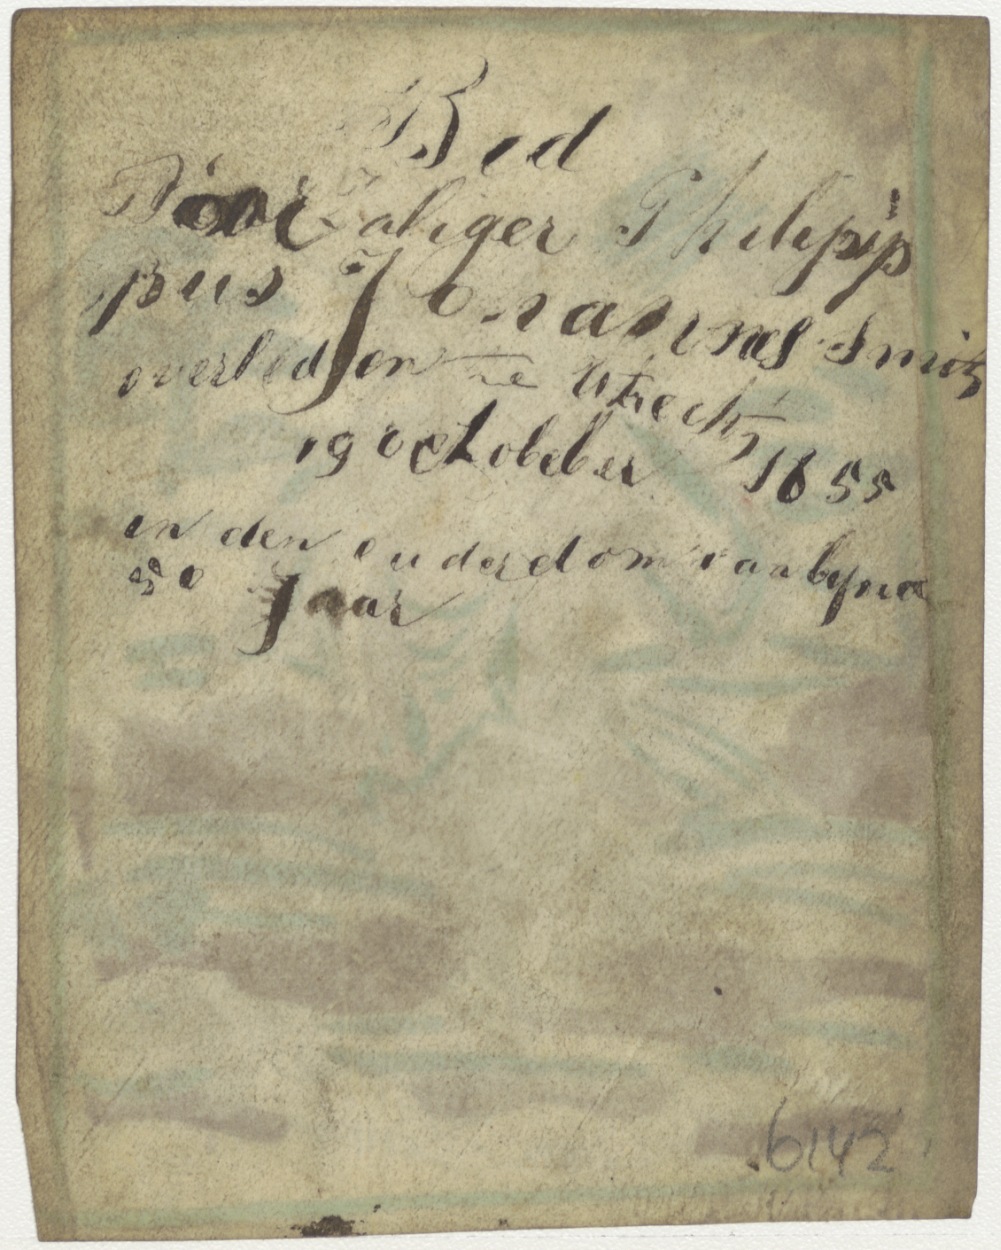 Bid
Voor Zaliger Philipp
pus Johannes Smits
overleden te Utrecht
19 october 1855
in den ouderdom van byna
50 Jaar
6142